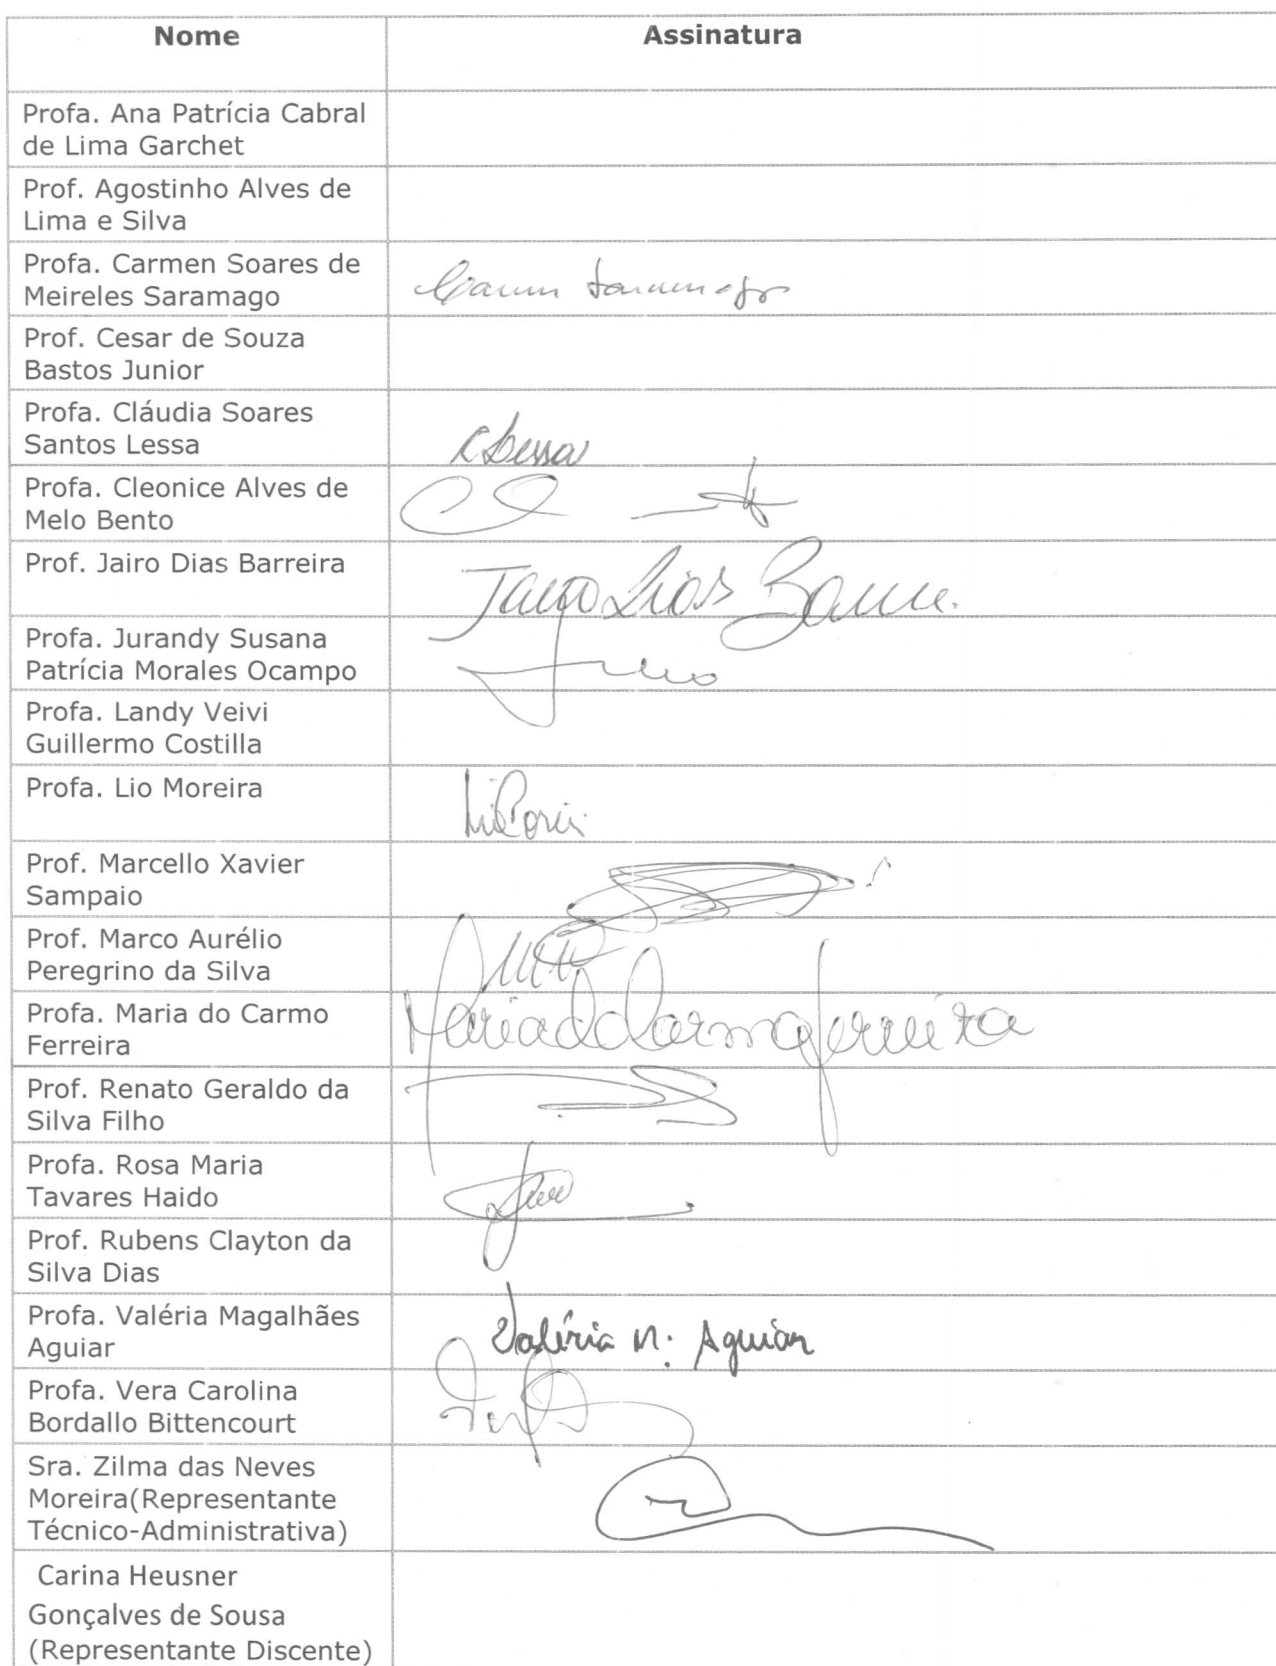 Nome Assinatura
Profa. Ana Patrícia Cabral
de Lima Garchet
Prof. Agostinho Alves de
Lima e Silva
Profa. Carmen Soares de
Meireles Saramago
Carmen Saramago
Prof. Cesar de Souza
Bastos Junior
Profa. Cláudia Soares
Santos Lessa
CLessa
Profa. Cleonice Alves de
Melo Bento
Prof. Jairo Dias Barreira
Jairo Dias
Profa. Jurandy Susana
Patrícia Morales Ocampo
Profa. Landy Veivi
Guillermo Costilla
Profa. Lio Moreira
Prof. Marcello Xavier
Sampaio
Prof. Marco Aurélio
Peregrino da Silva
Profa. Maria do Carmo
Ferreira
Maria do Carmo Ferreira
Prof. Renato Geraldo da
Silva Filho
Profa. Rosa Maria
Tavares Haido
Prof. Rubens Clayton da
Silva Dias
Profa. Valéria Magalhães
Aguiar
Valéria M. Aguiar
Profa. Vera Carolina
Bordallo Bittencourt
Sra. Zilma das Neves
Moreira(Representante
Técnico-Administrativa)
Carina Heusner
Gonçalves de Sousa
(Representante Discente)